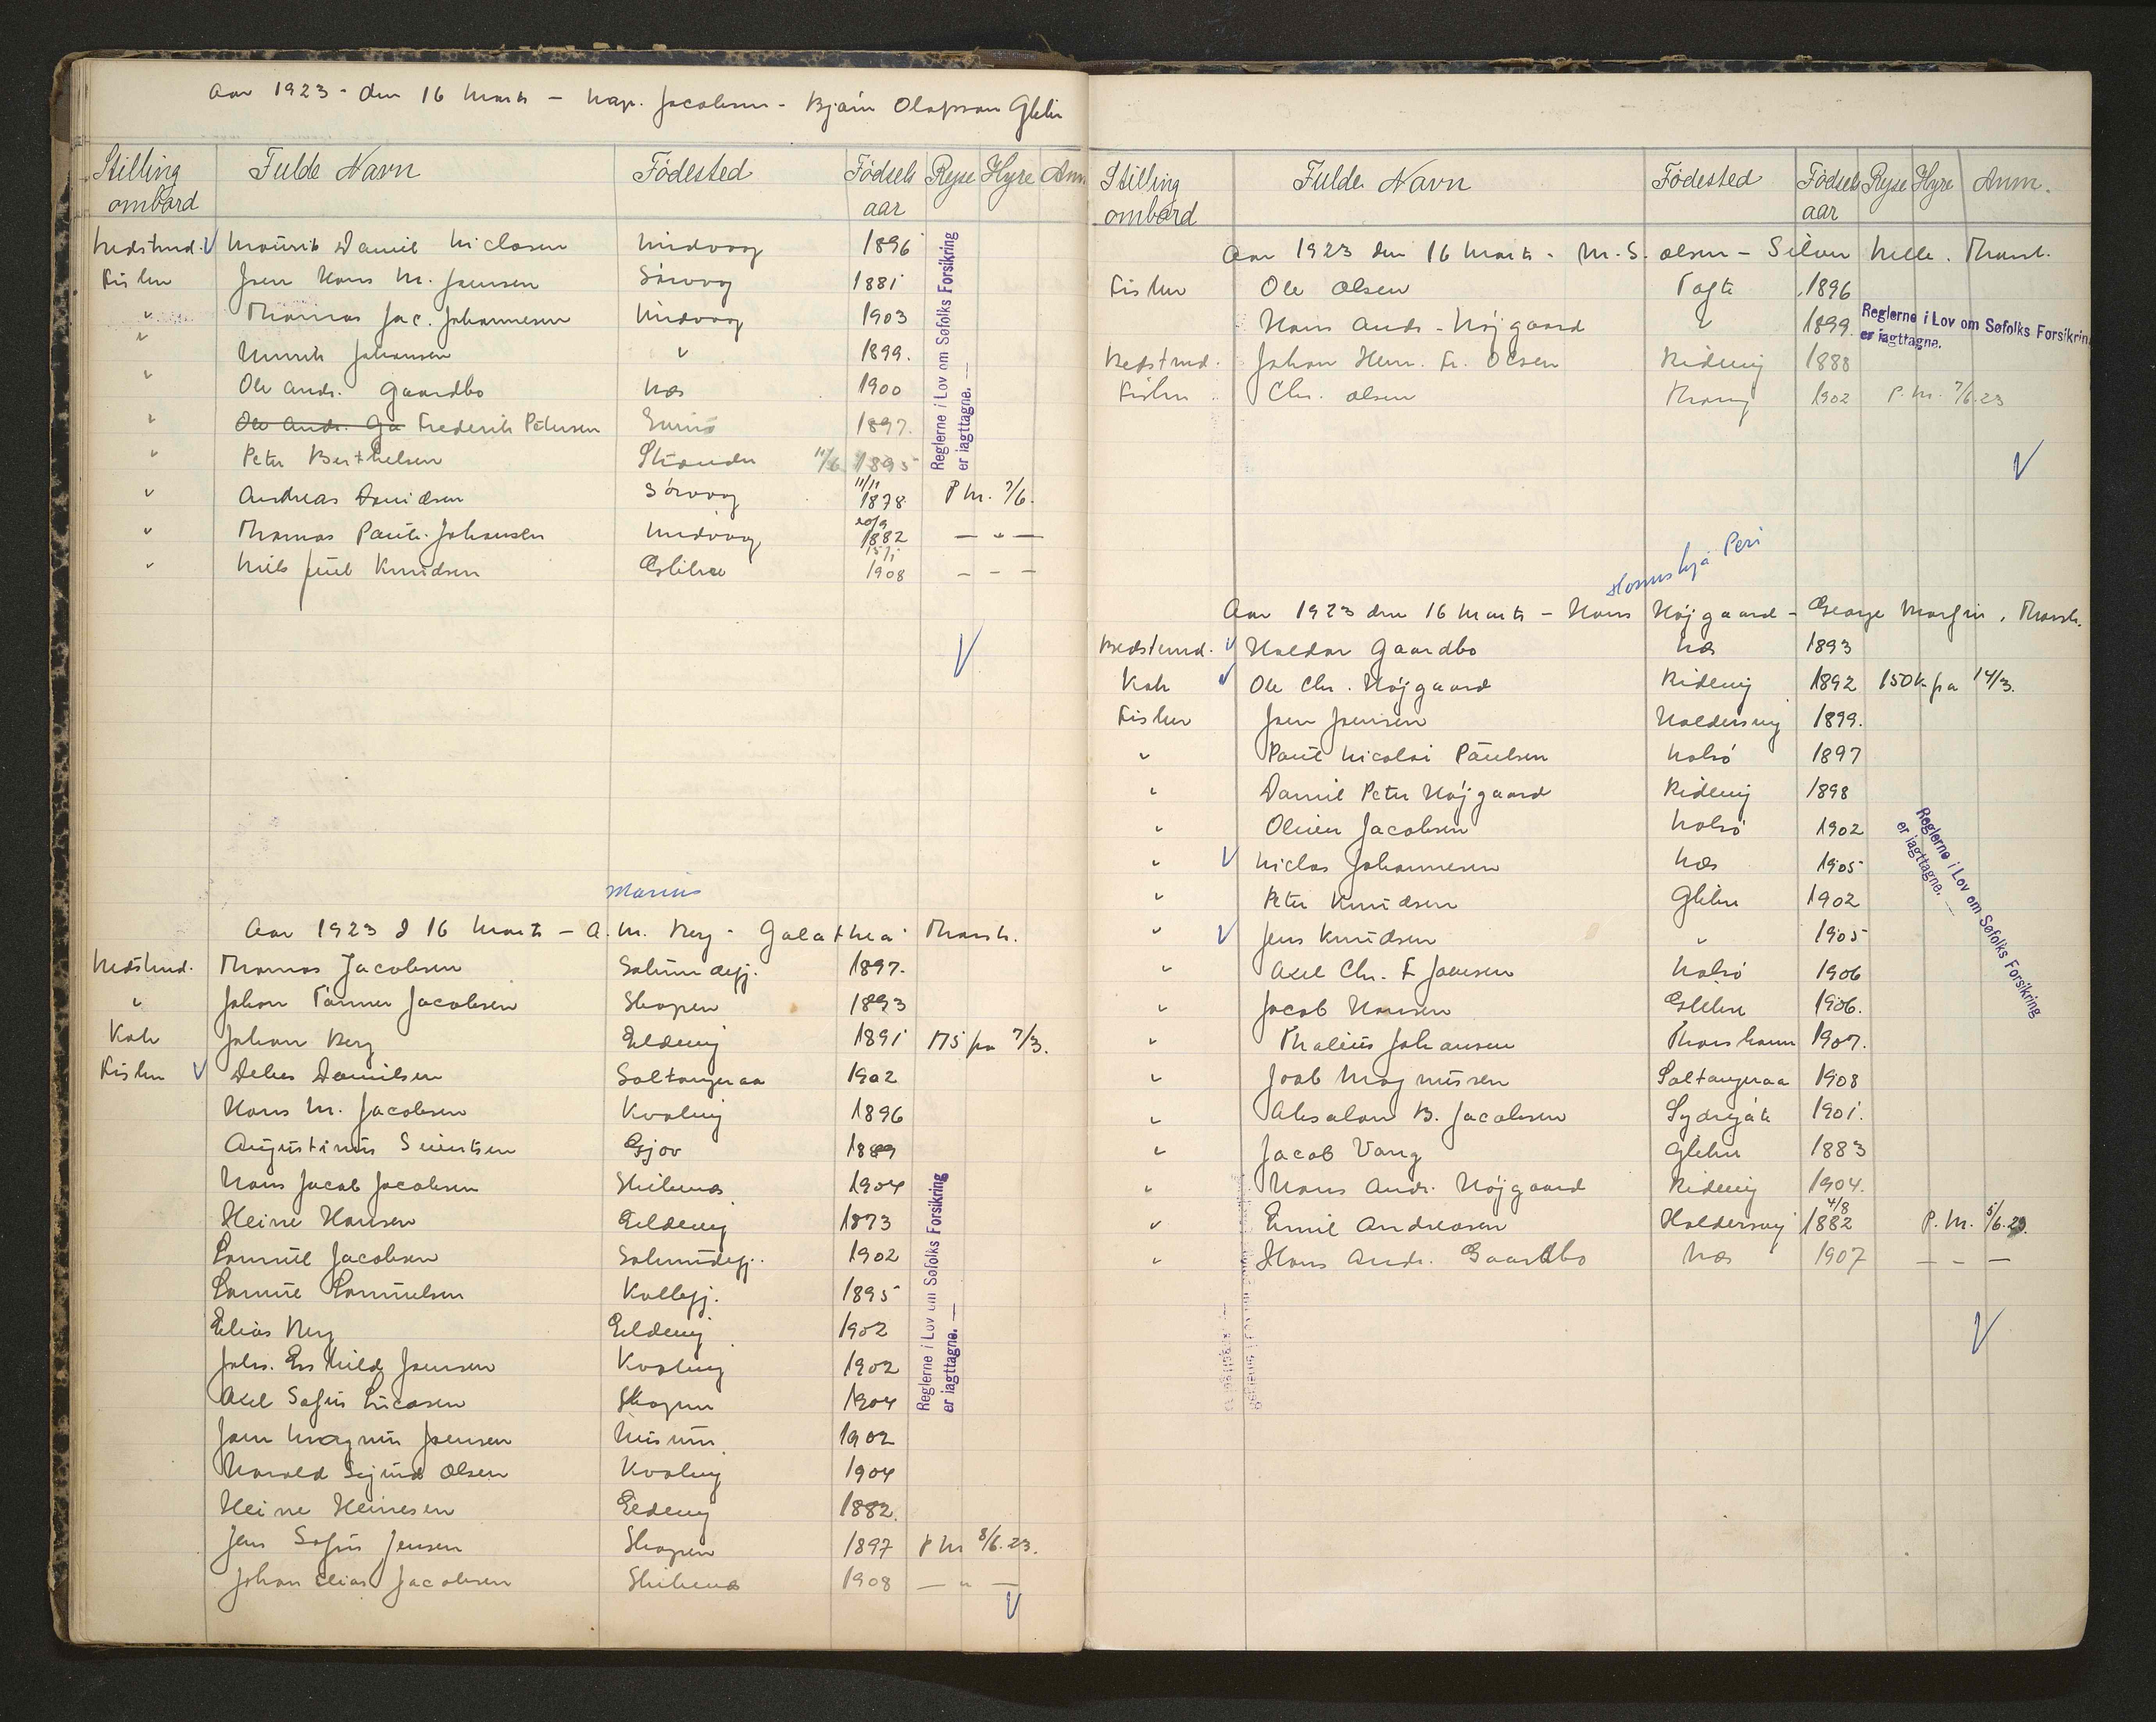 Aar 1923 - den 16 Marts - Kap. Jacobsen - Bjarni Olafsson Glibre
Stilling ombord Fulde Navn Fødested Fødsels aar Rejse Hyre Anm
Bedstmd. V Mourits Daniel Niclasen Midvaag 1896
Fisker Joen Hans M. Joensen Sörvaag 1881
" Thomas Jac. Johannesen Midvaag 1903
" Henrik Johansen " 1899.
" Ole Andr. Gaardbo Næs 1900
" Ole Andr. Ga Frederik Petersen 1897.
" Peter Berthelsen Strænder 11/6 1895
" Andreas Davidsen Sörvaag 11/11 1878 P M. 7/6.
" Thomas Pauli Johansen Midvaag 20/9 1882 — " —
" Niels Juul Knudsen Glibre 15/1 1908 - - -
Reglerne i Lov om Søfolks Forsikring
er iagttagne. —
V
Marius
Aar 1923 d 16 Marts - A. M. Berg - Galathea Thorsh.
Bedstmd. Thomas Jacobsen Solmundefj. 1897.
" Johan Jacobsen Skopen 1893
Kok Johan Berg Eldevig 1891 175 fra 7/3.
Fisker V Debes Danielsen Saltangeraa 1902
Hans M. Jacobsen Kvalvig 1896
Augustinus Simonsen Gjov 1889
Hans Jacob Jacobsen Skibenæs 1904
Heine Hansen Eldevig 1873
Samuel Jacobsen Solmundefj. 1902
Samuel Samuelsen Kollefj. 1895
Elias Berg Eldevig 1902
Johs. Eskild Joensen Kvalvig 1902
Axel Sofus Lucasen Skopen 1904
Joen Magnus Joensen Husum 1902
Harald Sigurd Olsen Kvalvig 1904
Heine Heinesen Eldevig 1882.
Jens Sofus Jensen Skopen 1897 P M 8/6.23.
Johan Elias Jacobsen Skibenæs 1908 — " —
Reglerne i Lov om Søfolks Forsikring
er iagttagne. —
V
Stilling ombord Fulde Navn Fødested Fødsels aar Rejse Hyre Anm.
Aar 1923 den 16 Marts - M. S. Olsen - Silver Belle. Thorsh.
Fisker Ole Olsen Tofte 1896
Hans Andr. Højgaard " 1899.
Bedstmd. Johan Henr. Fr. Olsen Ridevig 1888
Fisker Chr. Olsen 1902 P. M. 7/6.23
Reglerne i Lov om Søfolks Forsikrin
er iagttagne.
V
Hosvis hjá Peri
Aar 1923 den 16 Marts - Hans Højgaard - George Thorsh.
Bedstmd. V Haldor Gaardbo Næs 1893
Kok V Ole Chr. Højgaard Ridevig 1892 150 Kr fra 14/3.
Fisker Joen Joensen Haldersvig 1899.
" Paul Nicolai Paulsen Nolsö 1897
" Daniel Peter Højgaard Ridevig 1898
" Oliver Jacobsen Nolsö 1902
" V Niclas Johannesen Næs 1905
" Peter Knudsen Glibre 1902
" V Jens Knudsen " 1905
" Axel Chr. F Joensen Nolsö 1906
" Jacob Hansen Glibre 1906.
" Thaleus Johansen Thorshavn 1907.
" Joab Magnussen Saltangeraa 1908
" Absalon B. Jacobsen Sydregöte 1901.
" Jacob Vang Glibre 1883
" Hans Andr. Højgaard Ridevig 1904.
" Emil Andreasen Haldersvig 4/8 1882 P. M. 5/6.23.
" Hans Andr. Gaardbo Næs 1907 — - —
Reglerne i Lov om Søfolks Forsikring
er iagttagne. —
V